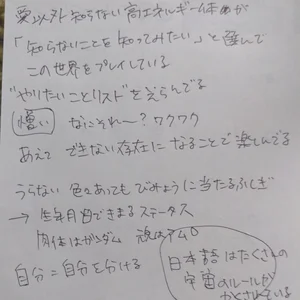 愛以外知らない高エネルギー体めが
「知らないことを知ってみたい」と選んで
この世界をプレイしている
"やりたいことリスト"をえらんでる
憎い なにそれ〜?ワクワク
あえて できない存在に なることで 楽しんでる
うらない 色々あっても びみょうに当たるふしぎ
→ 生年月日できまるステータス
肉体はガンダム 魂はアムロ
自分=自分を分ける
日本語はたくさんの
宇宙のルールが
かくされている